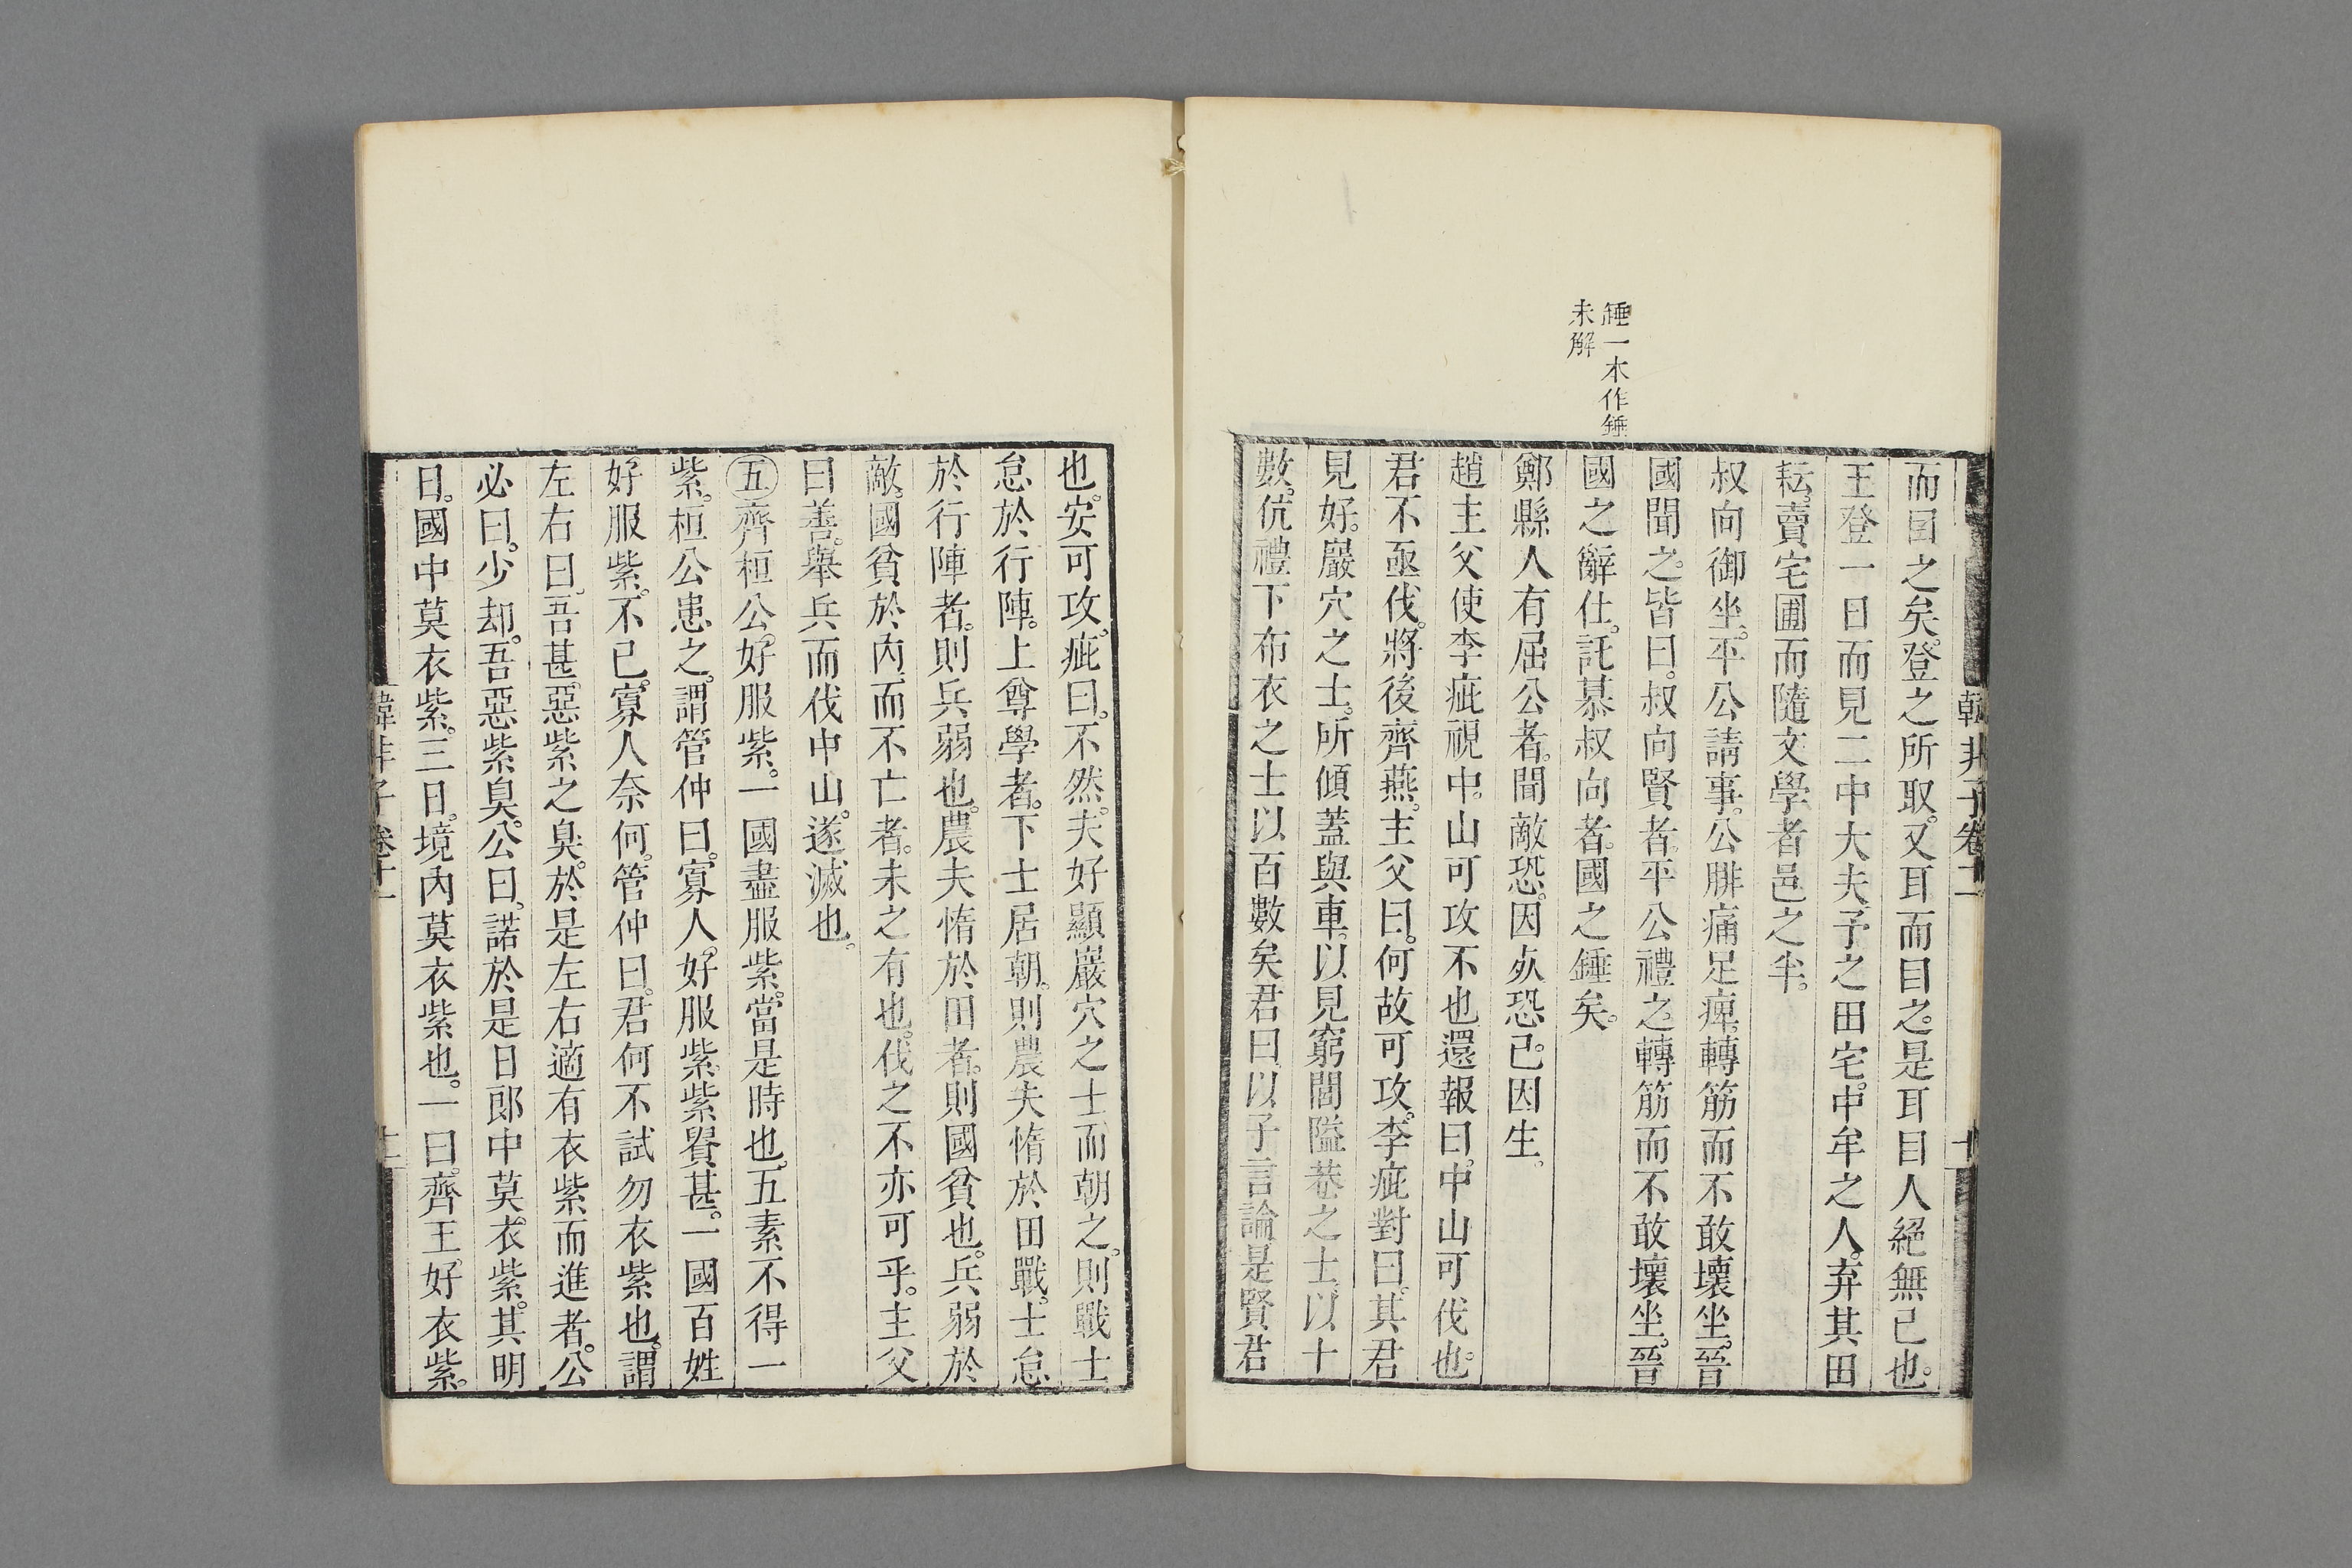 韓非子卷十一
十
𨤲一本作錘
未解
而目之矣。登之所取。又耳而目之。是耳目人絕無已也。
王登一日而見二中大夫。予之田宅。中牟之人。弃其田
耘。賣宅圃而隨文學者邑之半。
叔向御坐。平公請事。公腓痛足痺。轉筋而不敢壞坐。晉
國聞之。皆曰。叔向賢者。平公禮之。轉筋而不敢壞坐。晉
國之辭仕。託慕叔向者。國之錘矣。
鄭縣人有屈公者。聞敵恐。因死恐。已因生。
趙主父使李疵視中。山可攻不也。還報曰。中山可伐也。
君不亟伐。將後齊燕。主父曰。何故可攻。李疵對曰。其君
見好。巖穴之士。所傾蓋與車。以見窮閭隘巷之士。以十
數。伉禮下布衣之士以百數矣。君曰。以子言論。是賢君
也。安可攻。疵曰。不然。夫好顯巖穴之士而朝之。則戰士
怠於行陣。上尊學者。下士居朝。則農夫惰於田戰。士怠
於行陣者。則兵弱也。農夫惰於田者。則國貧也。兵弱於
敵。國貧於內。而不亡者。未之有也。伐之不亦可乎。主父
曰善。舉兵而伐中山。遂滅也。
五齊桓公。好服紫。一國盡服紫。當是時也。五素不得一
紫。桓公患之。謂管仲曰。寡人。好服紫。紫貴甚。一國百姓
好服紫。不已。寡人奈何。管仲曰。君何不試勿衣紫也。謂
左右曰。吾甚惡紫之臭。於是左右適有衣紫而進者。公
必曰。少却。吾惡紫臭。公曰。諾於是日郎中莫衣紫。其明
日。國中莫衣紫。三日。境內莫衣紫也。一曰。齊王好衣紫。
韓非子卷十一
十一